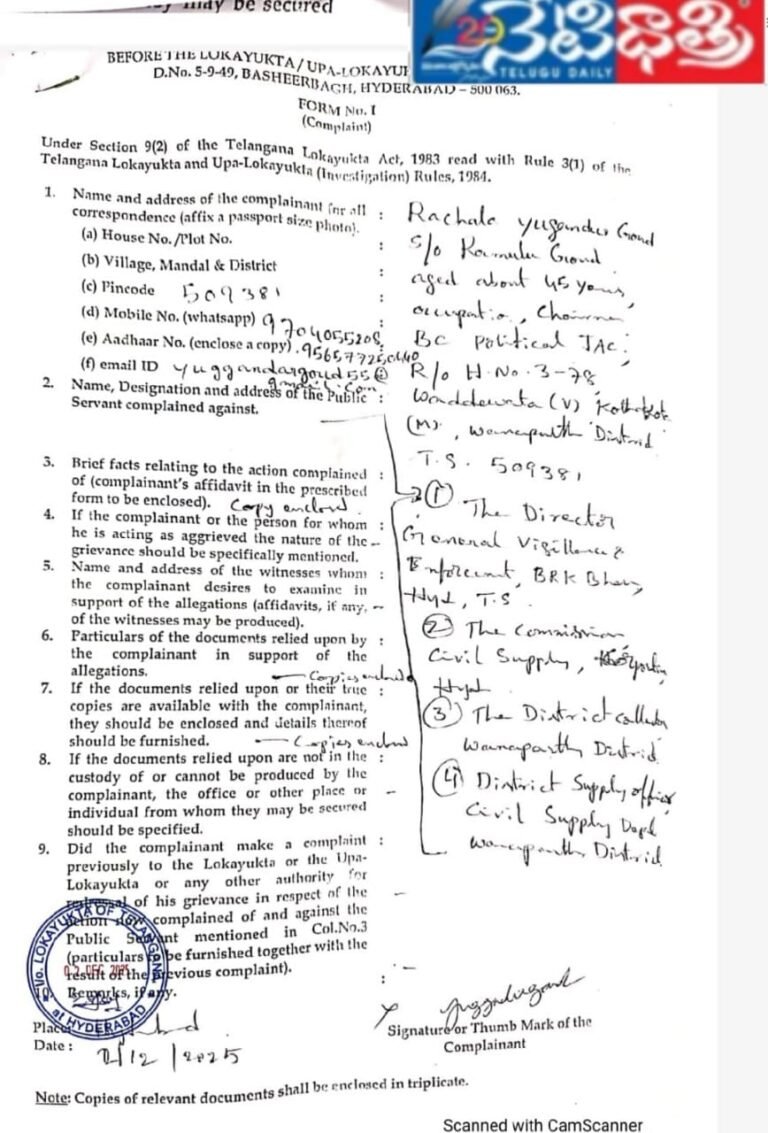 may be secured
29
నేటిధాత్రి
TELUGU DAILY
BEFORE THE LOKAYUKTA / UPA-LOKAYU
D.No. 5-9-49, BASHEERBAGH, HYDERABAD – 500 063.
FORM No. I
(Complaint)
Under Section 9(2) of the Telangana Lokayukta Act, 1983 read with Rule 3(1) of the
Telangana Lokayukta and Upa-Lokayukta (Investigation) Rules, 1984.
1. Name and address of the complainant for all
correspondence (affix a passport size photo). :
(a) House No./Plot No. :
(b) Village, Mandal & District :
(c) Pincode 509381 :
(d) Mobile No. (whatsapp) 9704055208
(e) Aadhaar No. (enclose a copy).
(f) email ID yuggandargoud55@
gmail.com
Rachala yugander Goud
S/o Ramulu Goud
aged about 45 years,
occupatio, Chairman
BC Political JAC,
R/o H.No. 3-78
(V) Kothakota
(M), Wanaparthi District
T.S. 509381
2. Name, Designation and address of the Public :
Servant complained against.
3. Brief facts relating to the action complained :
of (complainant's affidavit in the prescribed
form to be enclosed). Copy enclosed
4. If the complainant or the person for whom :
he is acting as aggrieved the nature of the –
grievance should be specifically mentioned.
5. Name and address of the witnesses whom :
the complainant desires to examine in
support of the allegations (affidavits, if any, –
of the witnesses may be produced).
6. Particulars of the documents relied upon by :
the complainant in support of the
allegations. — Copies enclosed
7. If the documents relied upon or their true :
copies are available with the complainant,
they should be enclosed and details thereof
should be furnished. — Copies enclosed
8. If the documents relied upon are not in the :
custody of or cannot be produced by the
complainant, the office or other place or –
individual from whom they may be secured
should be specified.
9. Did the complainant make a complaint :
previously to the Lokayukta or the Upa-
Lokayukta or any other authority for
redressal of his grievance in respect of the –
action now complained of and against the
Public Servant mentioned in Col.No.3
(particulars to be furnished together with the
result of the previous complaint).
10. Remarks, if any. :
① The Director
General Vigillence &
Enforcement, BRK Bhavan,
Hyd, T.S.
② The Commission
Civil Supply,
Hyd
③ The District collector
Wanaparthy District
④ District Supply officer
Civil Supply Dept
Wanaparthy District
LOKAYUKTA OF TELANGANA
at HYDERABAD
02 DEC 2025
Place: Hyd
Date : 2/12/2025
Signature or Thumb Mark of the
Complainant
Note: Copies of relevant documents shall be enclosed in triplicate.
Scanned with CamScanner